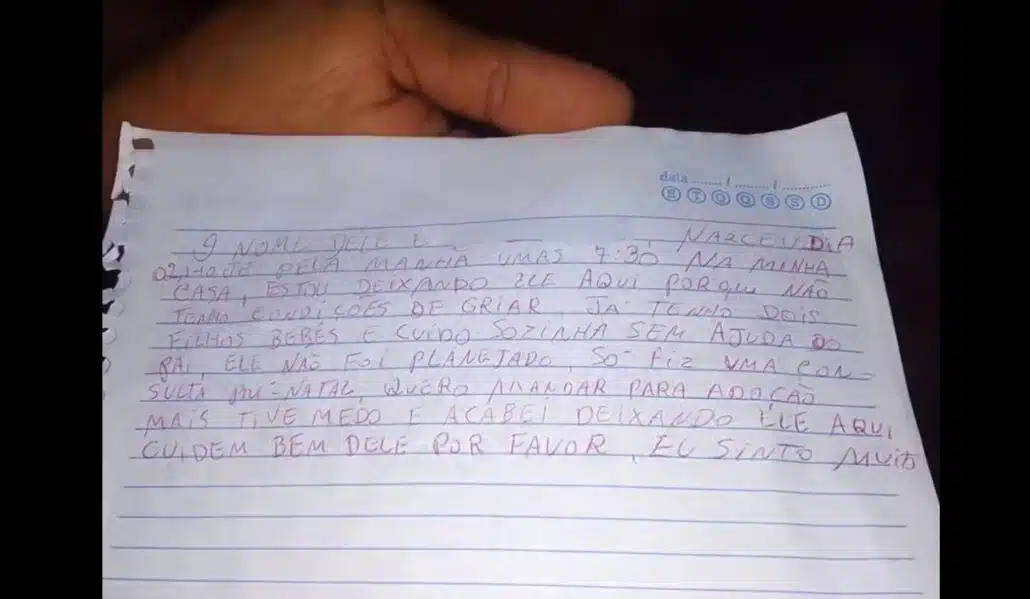 data ....... / ........ / ............
S T Q Q S S D
O NOME DELE É NASCEU DIA
PELA MANHÃ UMAS 7:30 NA MINHA
CASA, ESTOU DEIXANDO ELE AQUI PORQUE NÃO
TENHO CONDIÇÕES DE GRIAR, JÁ TENHO DOIS
FILHOS BEBÊS E CUIDO SOZINHA SEM AJUDA DO
PAI, ELE NÃO FOI PLANEJADO, SÓ FIZ UMA CON-
SULTA PRÉ-NATAL, QUERO MANDAR PARA ADOÇÃO
MAIS TIVE MEDO E ACABEI DEIXANDO ELE AQUI,
CUIDEM BEM DELE POR FAVOR, EU SINTO MUITO